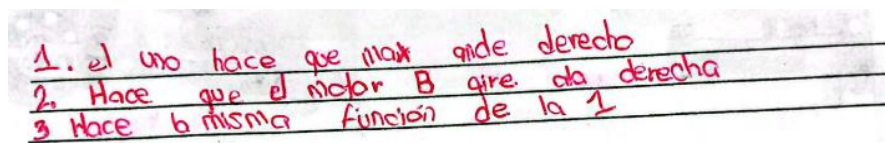 1. el uno hace que max ande derecho
2. Hace que el motor B gire a la derecha
3 Hace la misma función de la 1